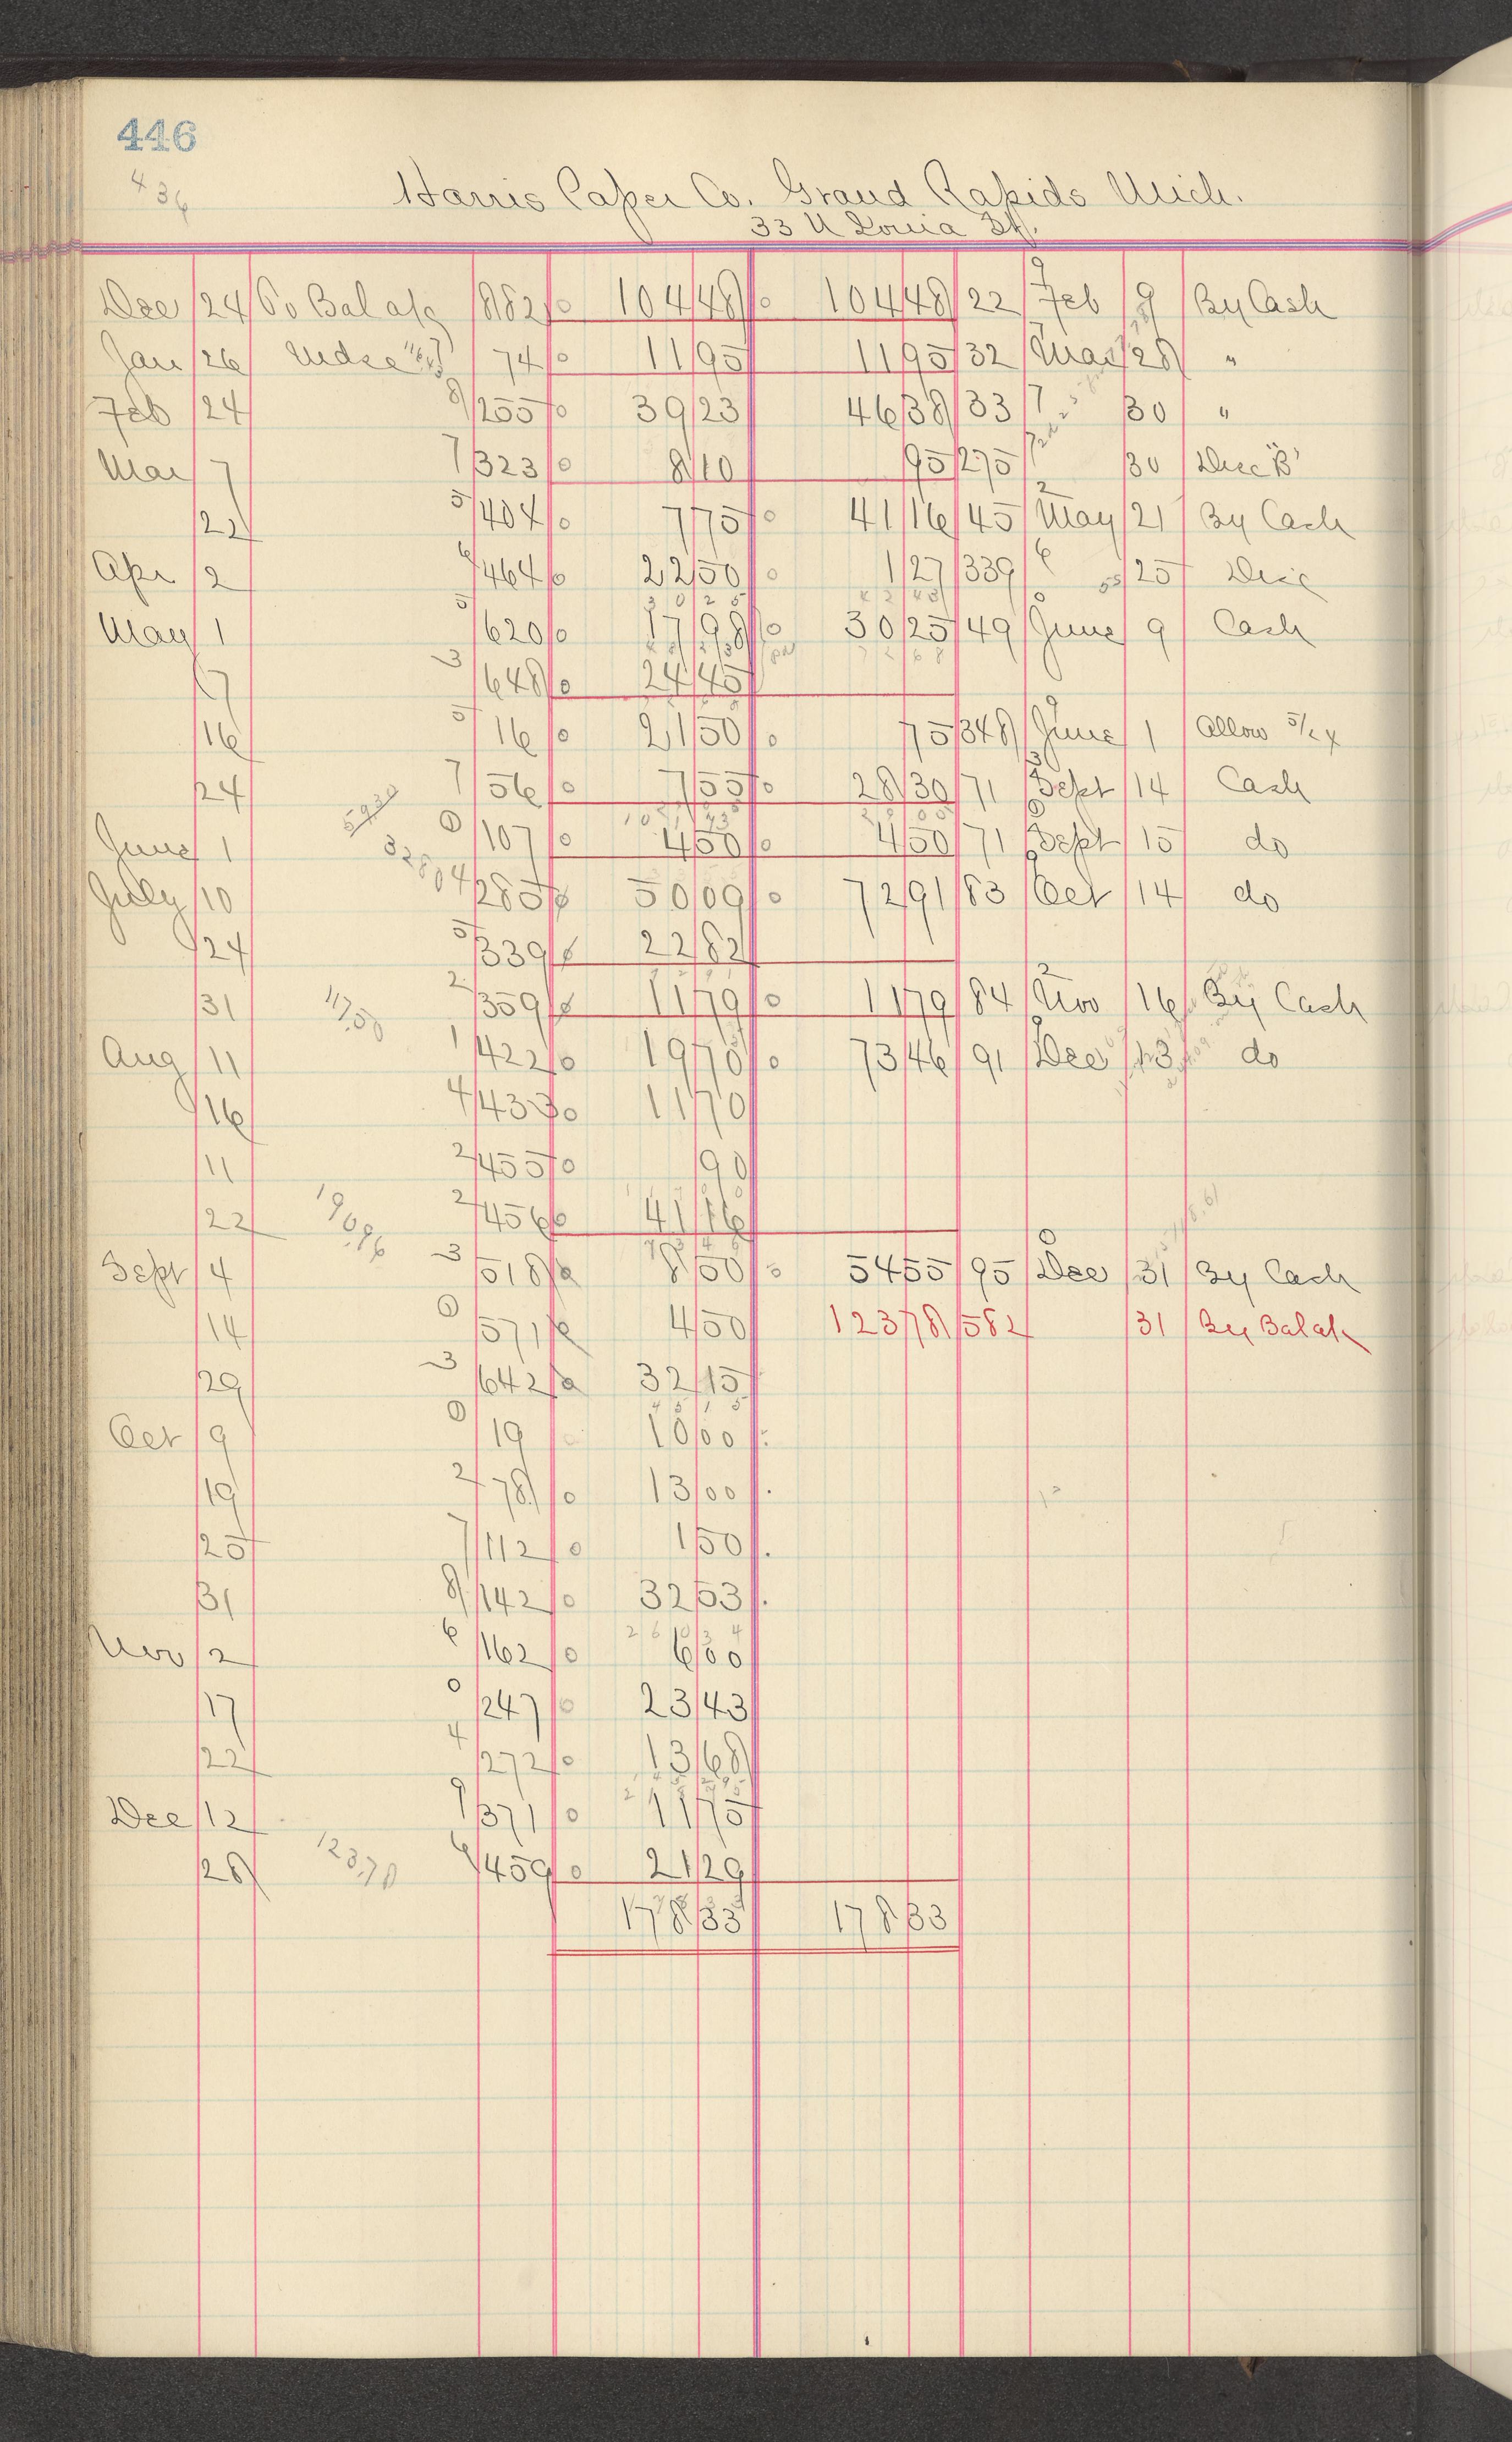 446
436
Harris Paper Co. Grand Rapids Mich.
33 N Ionia St.
Dec 24 To Bal a/c 882 104 48 104 48 22 Feb 9 By Cash
Jan 26 Mdse 74 11 95 11 95 32 Mar 28 "
Feb 24 255 39 23 46 38 33 30 "
Mar 7 323 8 10 95 275 30 Disc "B"
22 404 7 75 41 16 45 May 21 By Cash
Apr 2 464 22 50 1 27 339 25 Disc
May 1 620 17 98 30 25 49 June 9 Cash
7 648 24 45
16 16 21 50 75 348 June 1 Allow 5/24
24 56 7 55 28 30 71 Sept 14 Cash
June 1 107 4 50 4 50 71 Sept 15 do
July 10 285 50 09 72 91 83 Oct 14 do
24 339 22 82
31 1179 359 11 79 11 79 84 Nov 16 By Cash
Aug 11 422 19 70 73 46 91 Dec 13 do
16 433 11 70
11 455 90
22 456 41 16
Sept 4 518 8 50 54 55 95 Dec 31 By Cash
14 571 4 50 123 78 582 31 By Balak
29 642 32 15
Oct 9 19 10 00
19 78 13 00
25 112 1 50
31 142 32 53
Nov 2 162 6 00
17 247 23 43
22 272 13 68
Dec 12 371 11 75
28 123.78 459 21 29
178 33 178 33